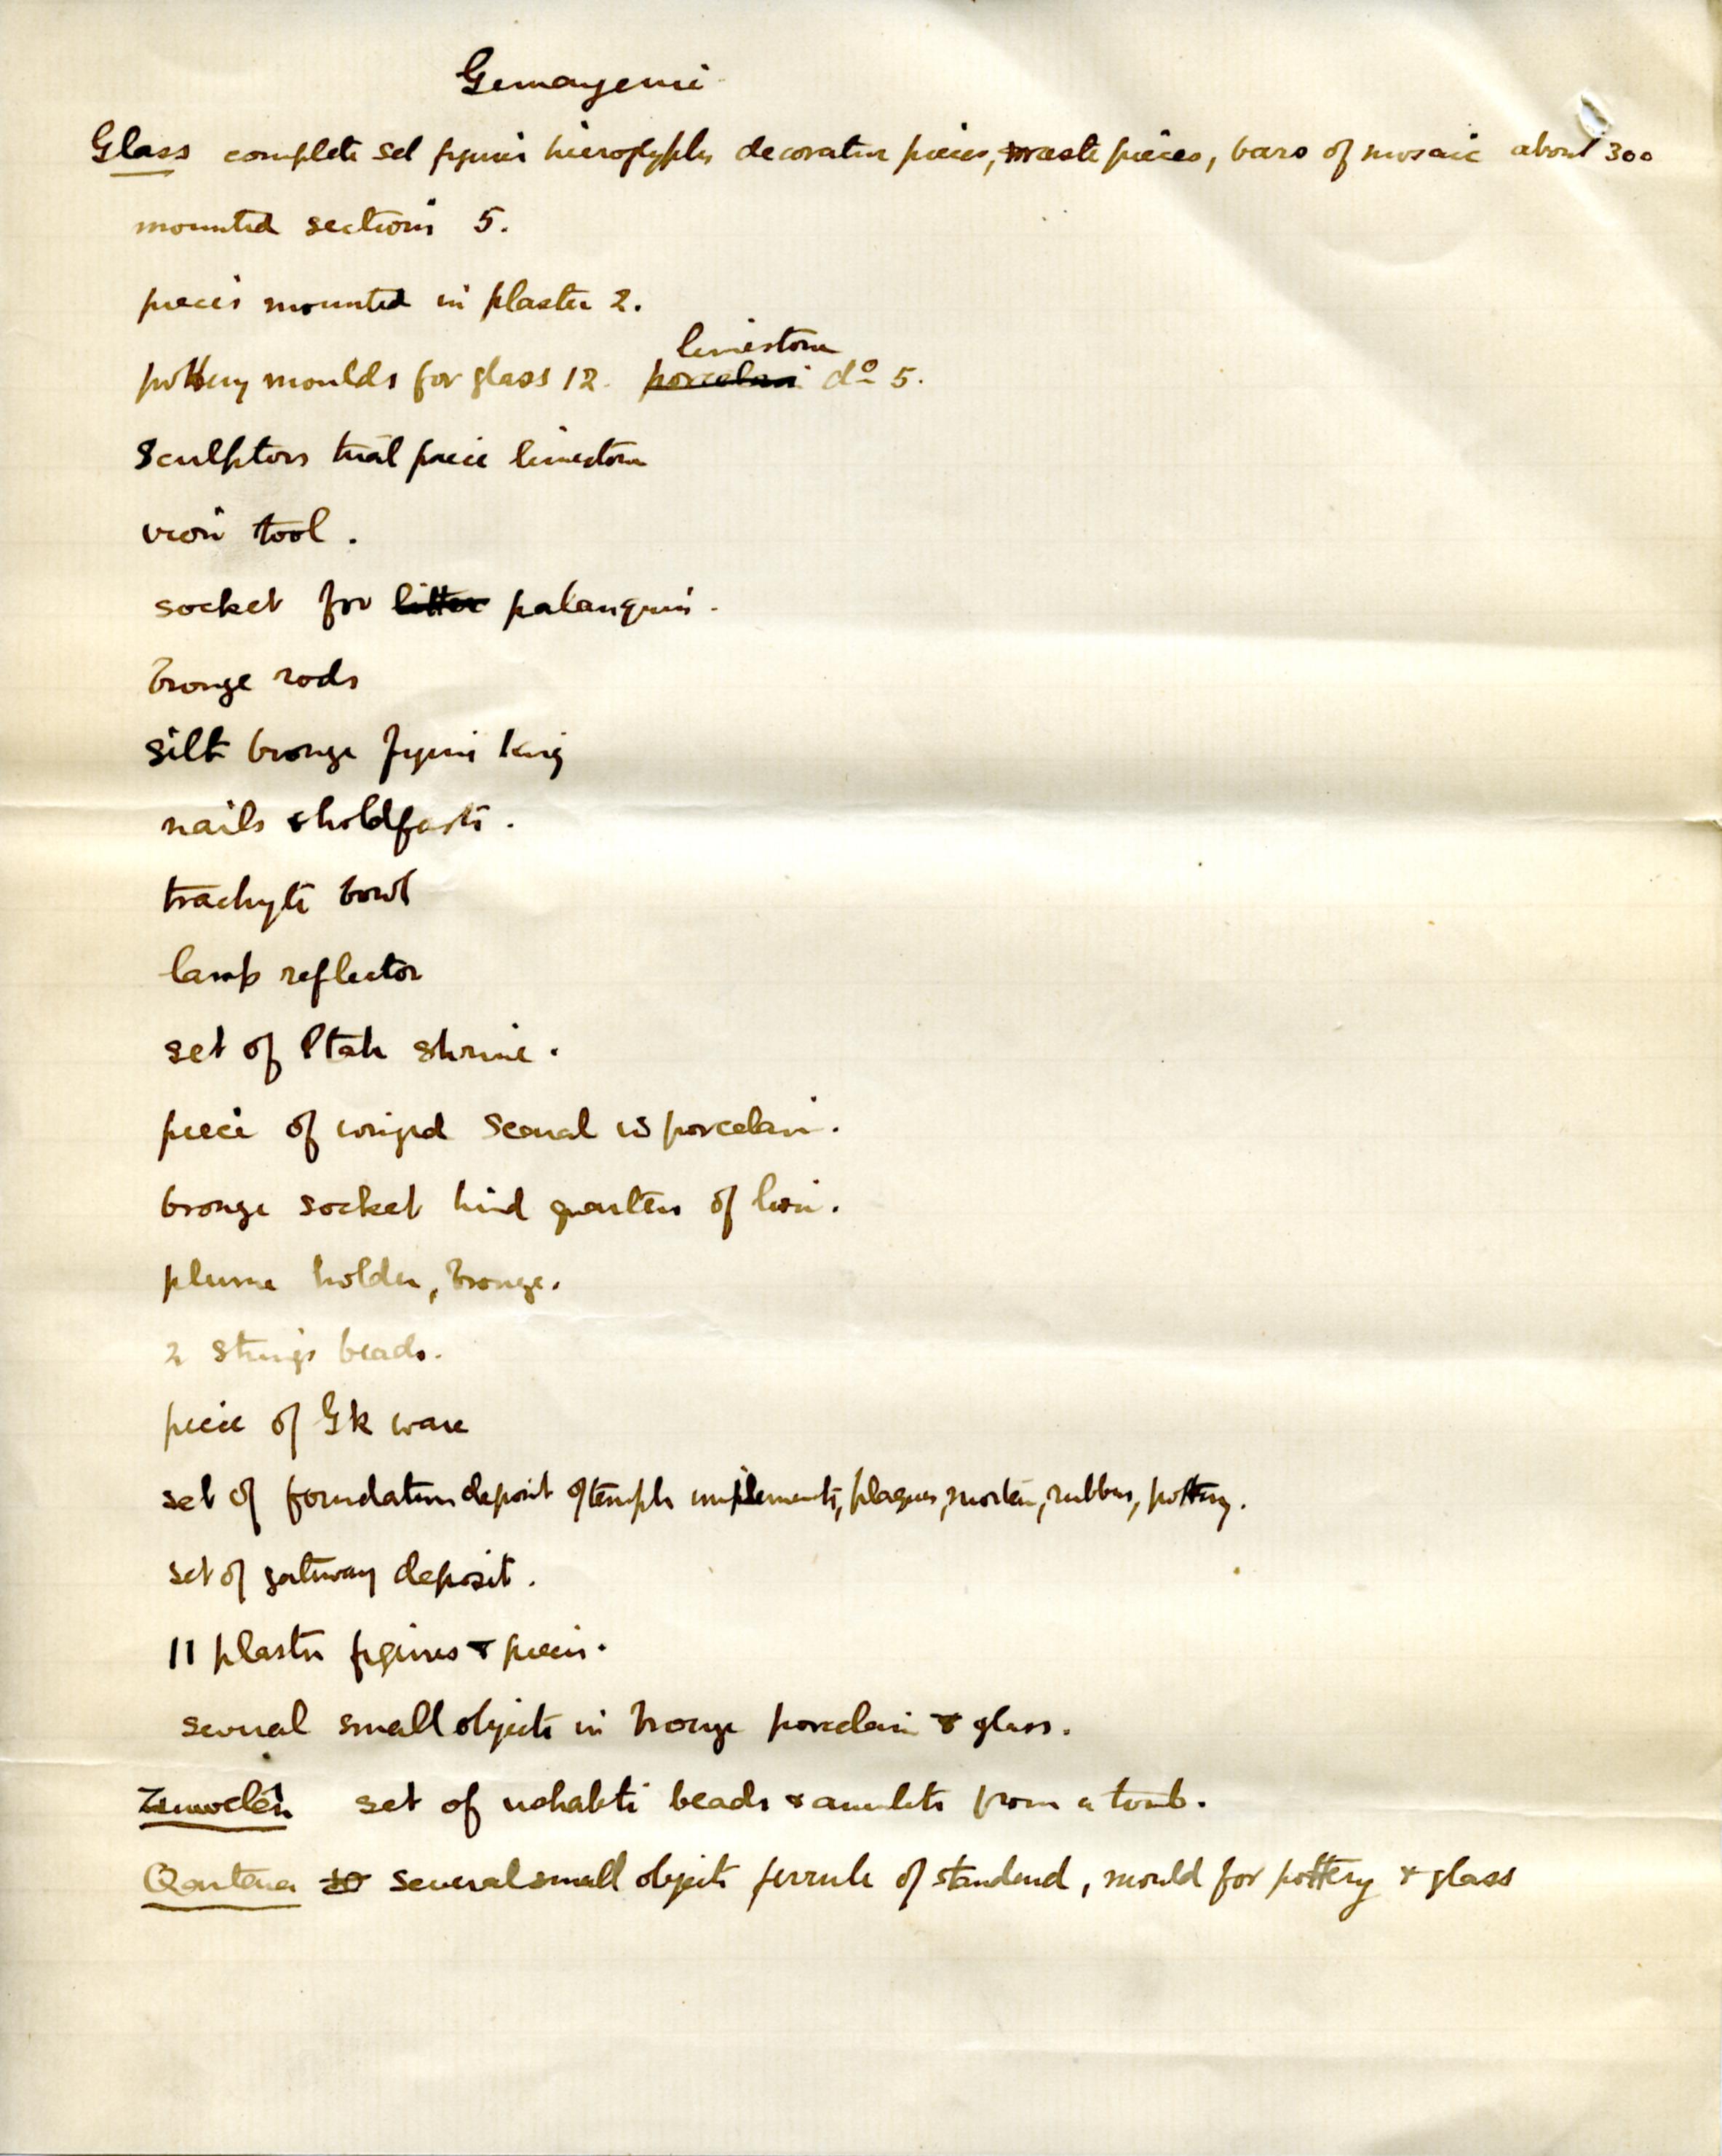 Gemayemi
Glass complete set figures hieroglyphs decorative pieces, waste pieces, bars of mosaic about 300
mounted sections 5.
pieces mounted in plaster 2.
limestone
pottery moulds for glass 12. porcelain do 5.
Sculptors trial piece limestone
iron tool.
socket for litter palanquin.
bronze rods
silt bronze figure king
nails & holdfasts.
trachyte bowl
lamp reflector
set of Ptah shrine.
piece of winged scarab porcelain.
bronze socket hind quarters of lion.
plume holder, bronze.
2 strings beads.
piece of Gk ware
set of foundation deposit of temple implements, plaques, mortar, rubber, pottery.
set of gateway deposit.
11 plaster figures & pieces.
several small objects in bronze porcelain & glass.
Zuwelén set of ushabti beads & amulets from a tomb.
Qantara several small objects ferrule of standard, mould for pottery & glass